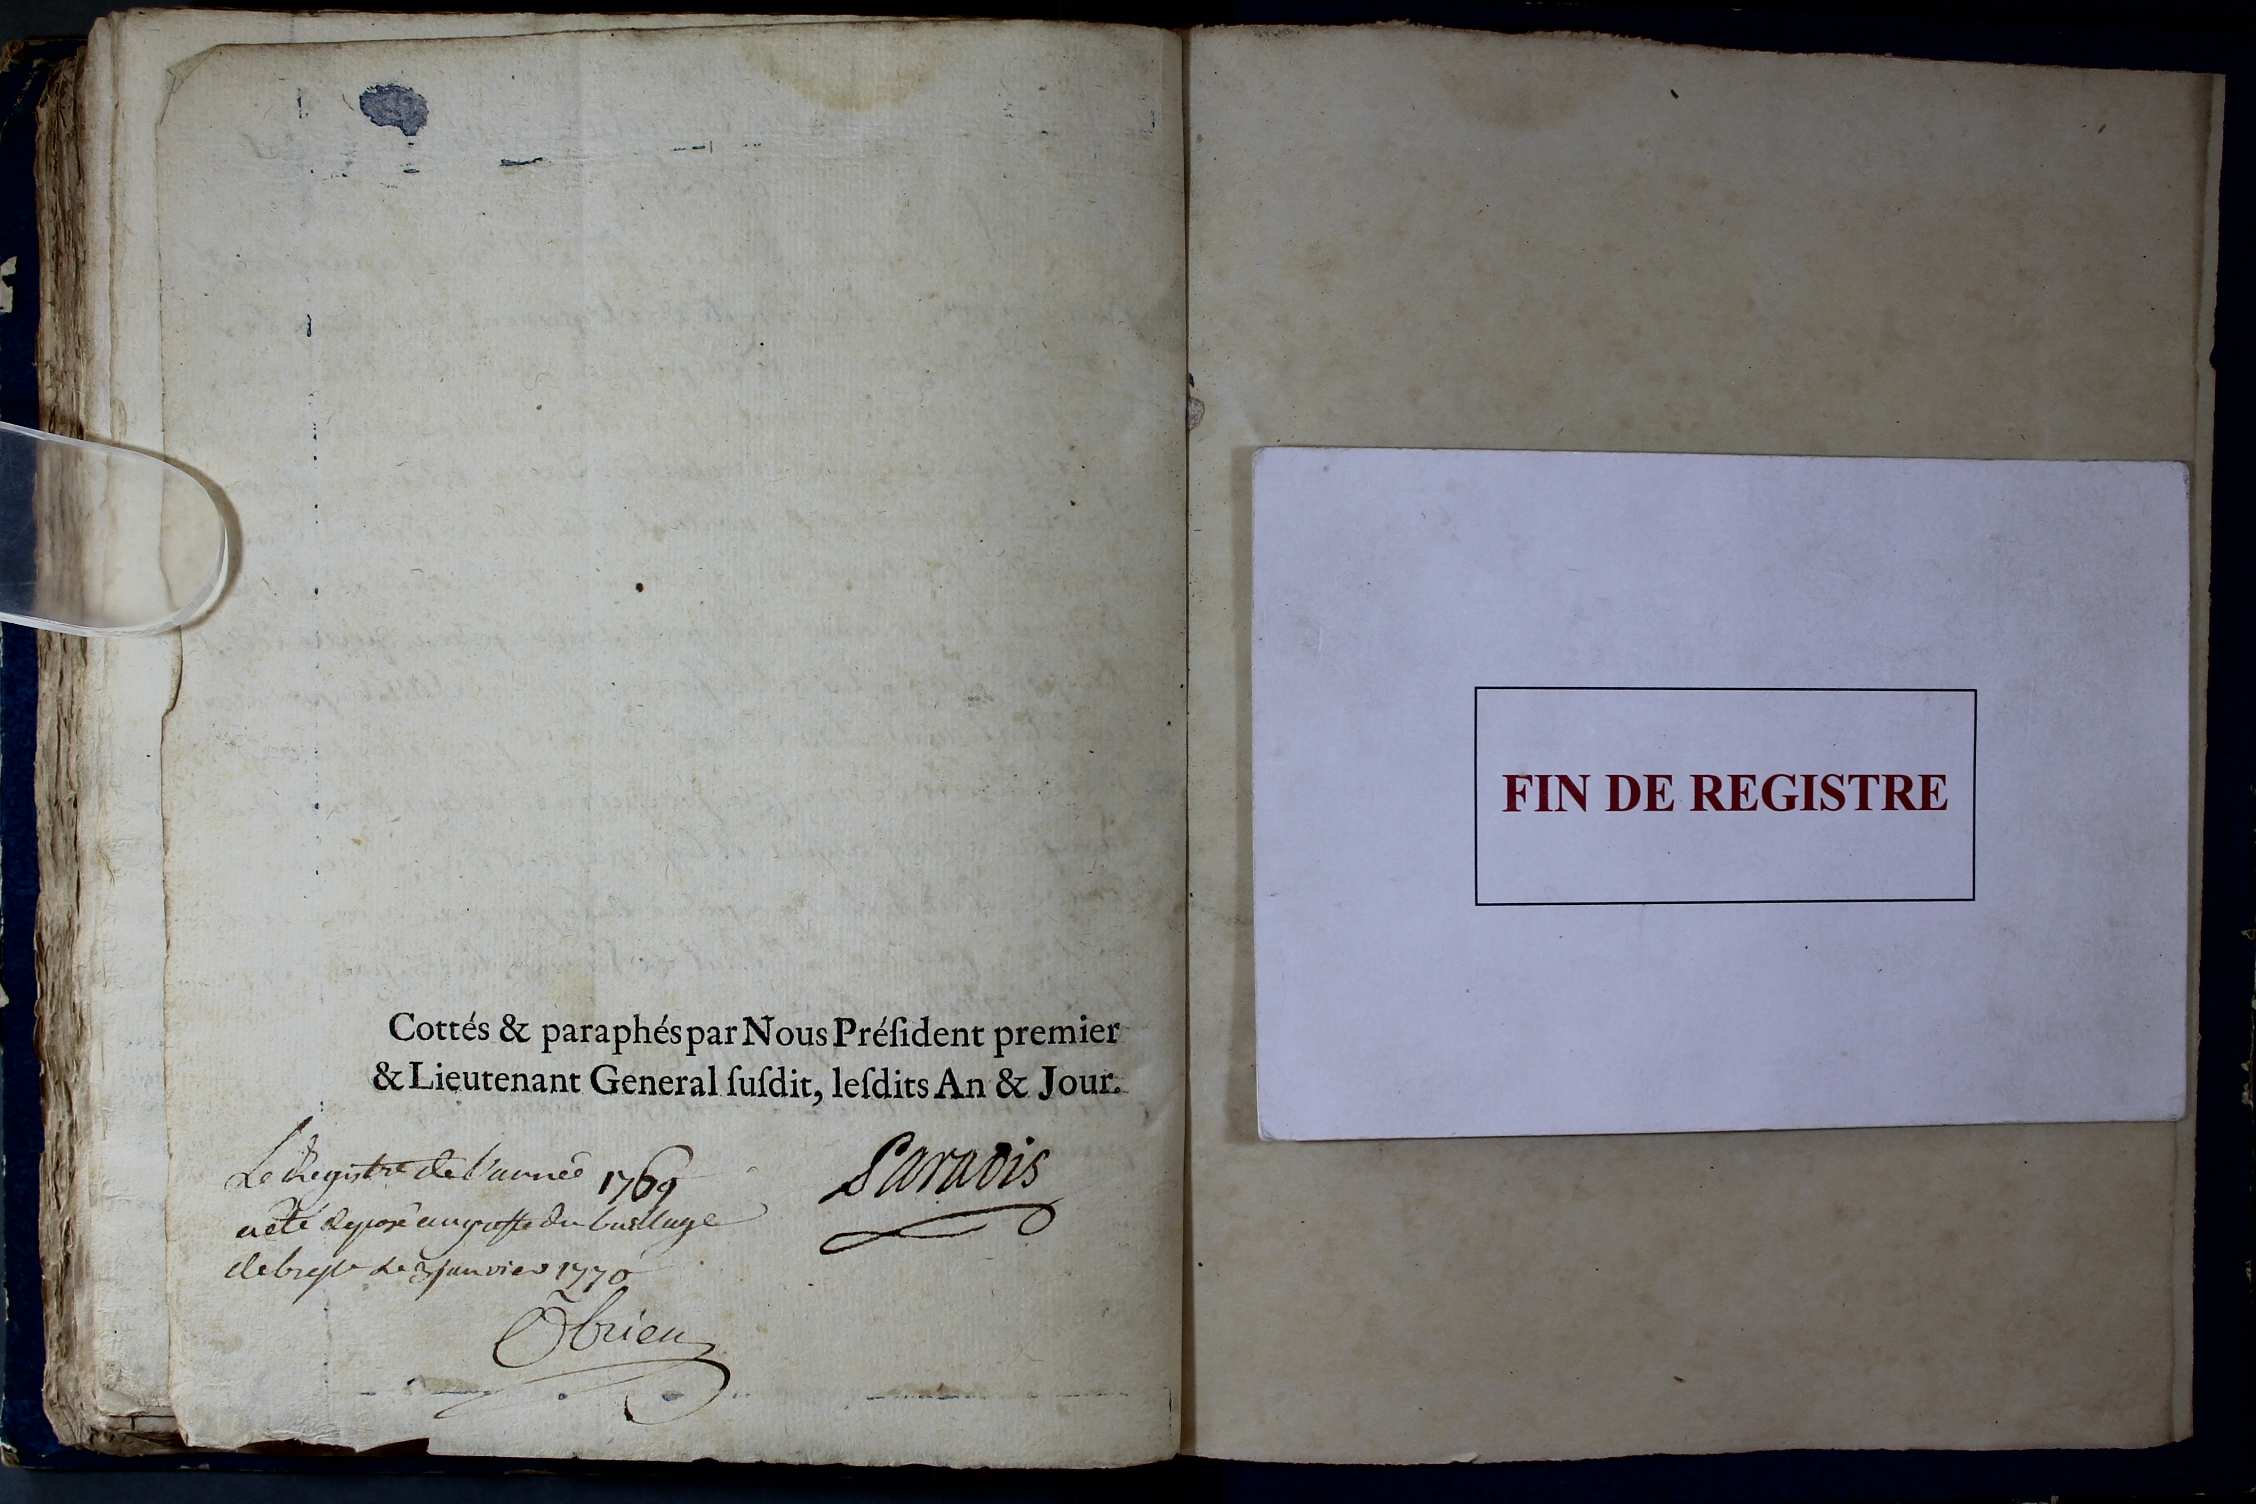 Cottés & paraphés par Nous Préſident premier
& Lieutenant General ſuſdit, leſdits An & Jour.
Le Registre de l'année 1769
a été deposé au greffe du bailliage
de le 3 janvier 1770
Paradis
Obrien
FIN DE REGISTRE